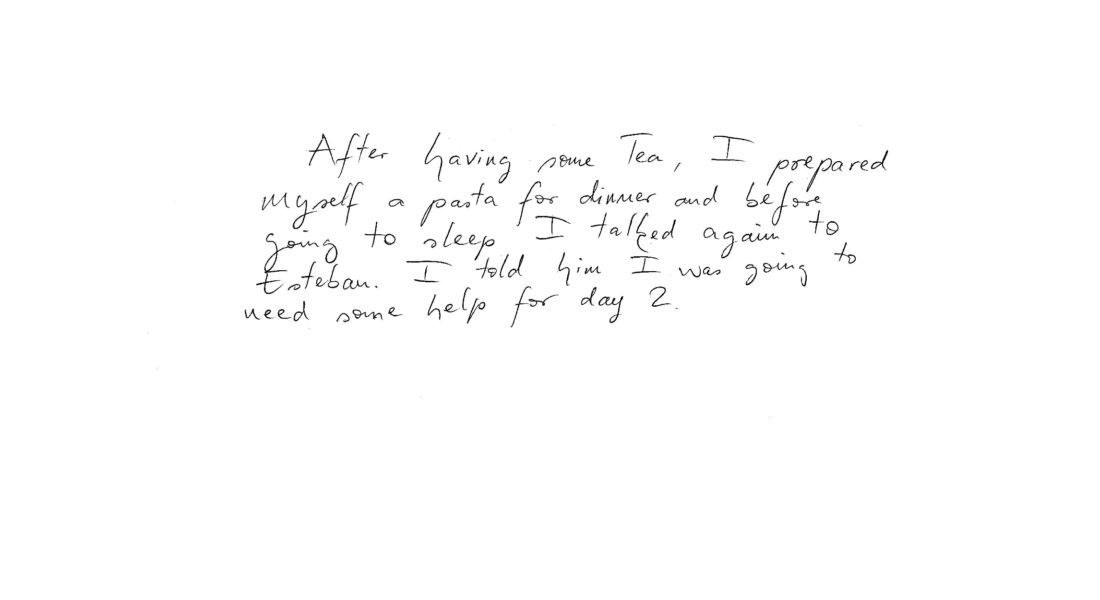 After having some Tea, I prepared
myself a pasta for dinner and before
going to sleep I talked again to
Esteban. I told him I was going to
need some help for day 2.